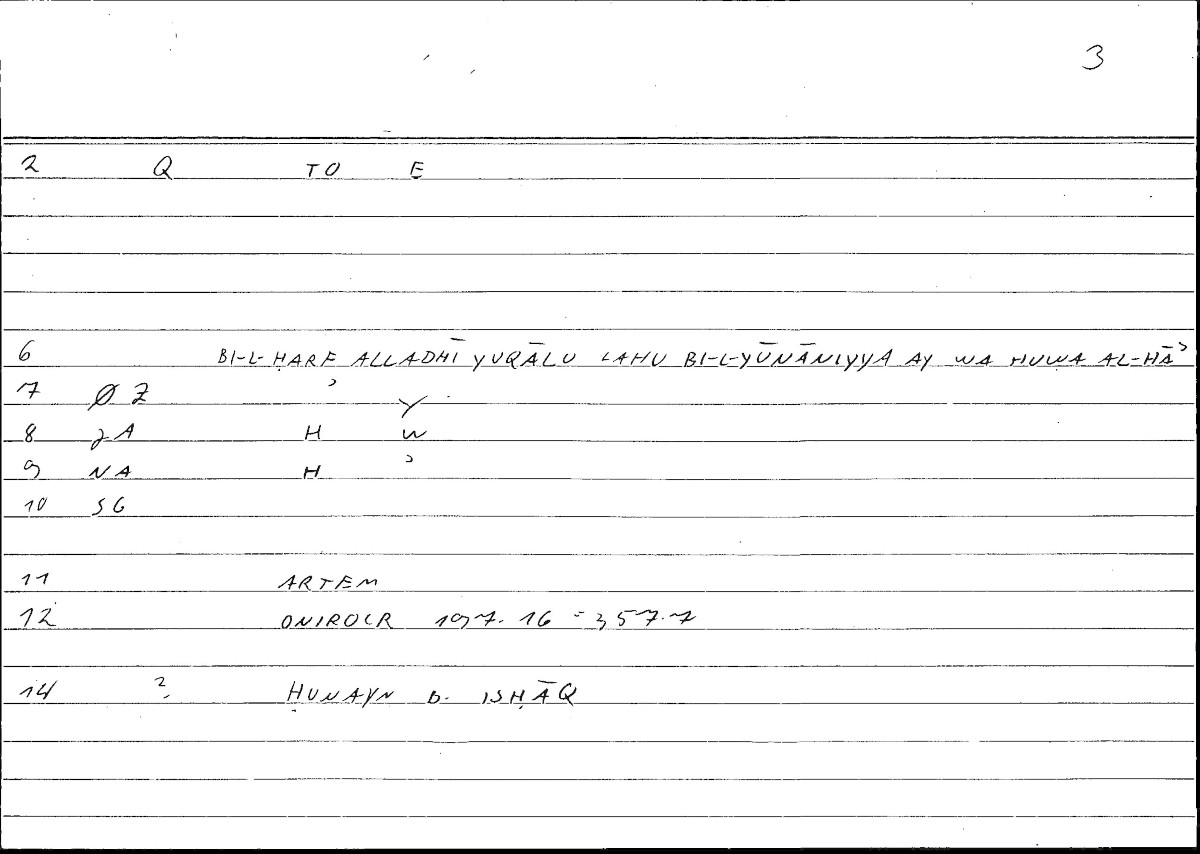 3
2 Q TO E
6 BI-L-ḤARF ALLADHĪ YUQĀLU LAHU BI-L-YŪNĀNIYYA AY WA HUWA AL-HĀʾ
7 Ø Z ʾ Y
8 2A H W
9 NA H ʾ
10 SG
11 ARTEM
12 ONIROCR 197.16 = 357.7
14 ? ḤUNAYN B. ISḤĀQ